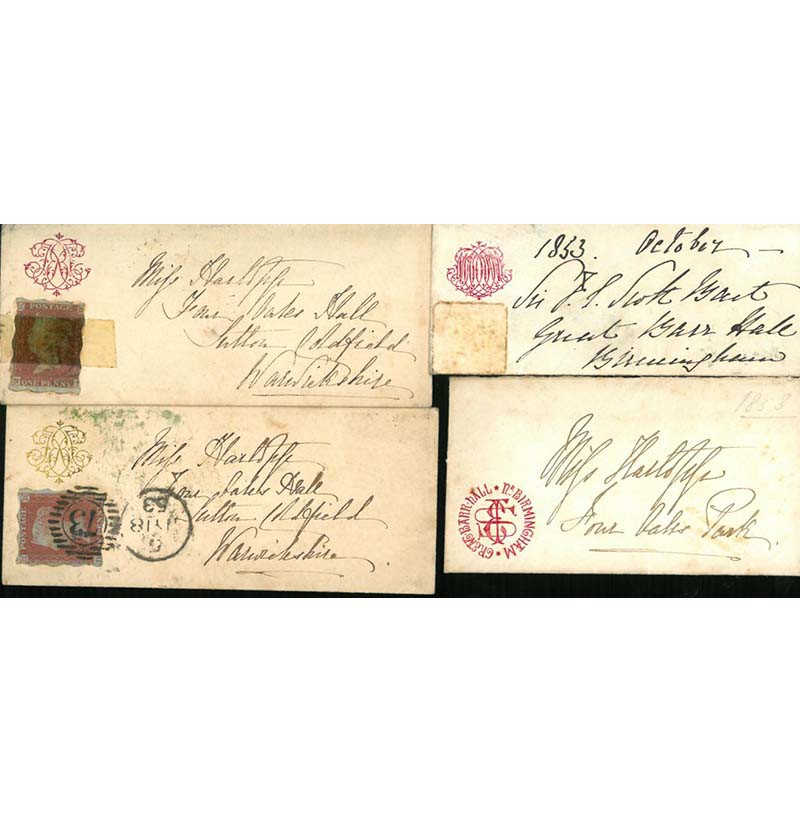 Miss Hartopp
Four Oakes Hall
Sutton Coldfield
Warwickshire
POSTAGE
ONE PENNY
1853. October
Sir F. E. Scott Bart
Great Barr Hall
Birmingham
Miss Hartopp
Four Oakes Hall
Sutton Coldfield
Warwickshire
POSTAGE
73
JY 18
53
1853
Miss Hartopp
Four Oaks Park
GREAT BARR HALL * Nr. BIRMINGHAM *